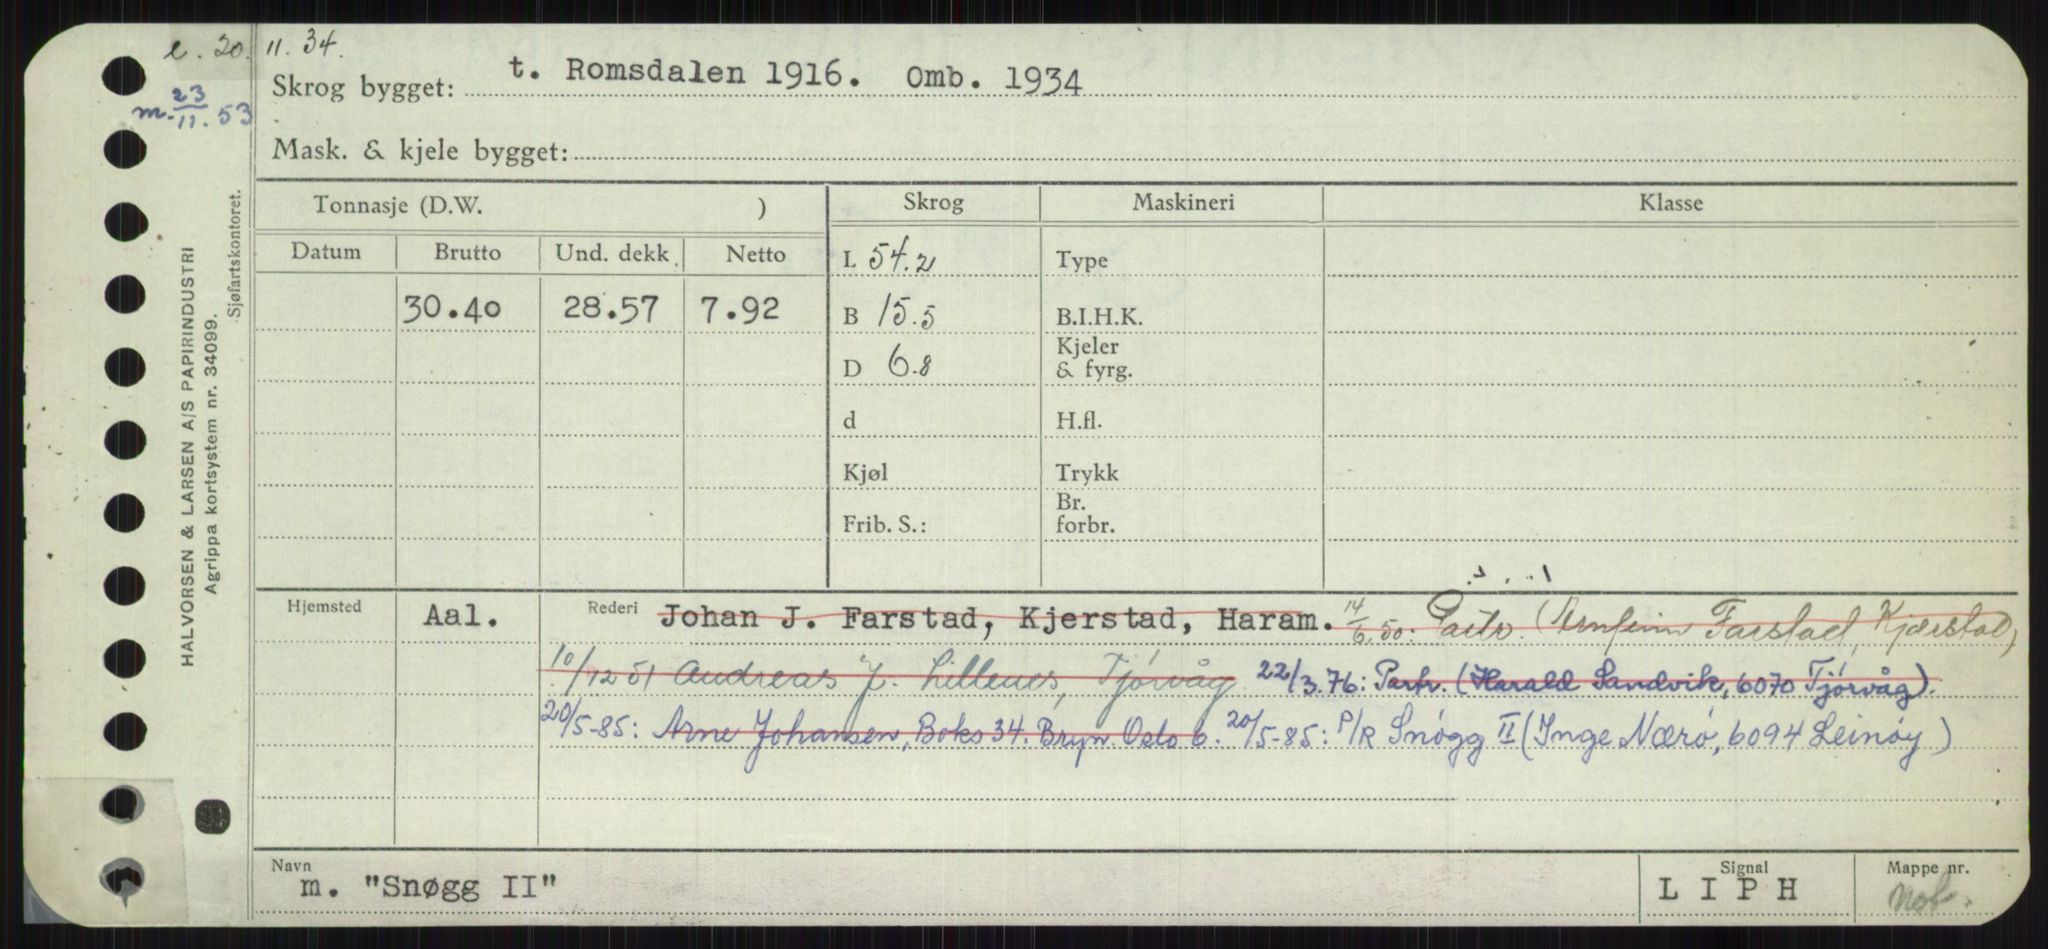 e. 20. 11. 34.
m. 23/11. 53
Skrog bygget: t. Romsdalen 1916. Omb. 1934
Mask. & kjele bygget:
Tonnasje (D.W. ) Skrog Maskineri Klasse
Datum Brutto Und. dekk. Netto L 54.2 Type
30.40 28.57 7.92 B 15.5 B.I.H.K.
D 6.8 Kjeler & fyrg.
d H.fl.
Kjøl Trykk
Frib. S.: Br. forbr.
Hjemsted Aal. Rederi Johan J. Farstad, Kjerstad, Haram. 14/6.50: Partr. (Arnfinn Farstad, Kjerstad)
10/12 51 Andreas J. Lillenes, Tjørvåg 22/3.76: Partr. (Harald Sandvik, 6070 Tjørvåg).
20/5-85: Arne Johansen, Boks 34. Bryn. Oslo 6. 20/5-85: P/R Snøgg II (Inge Nærø, 6094 Leinøy)
Navn Signal Mappe nr.
m. "Snøgg II" L I P H
HALVORSEN & LARSEN A/S PAPIRINDUSTRI
Agrippa kortsystem nr. 34099.
Sjøfartskontoret.